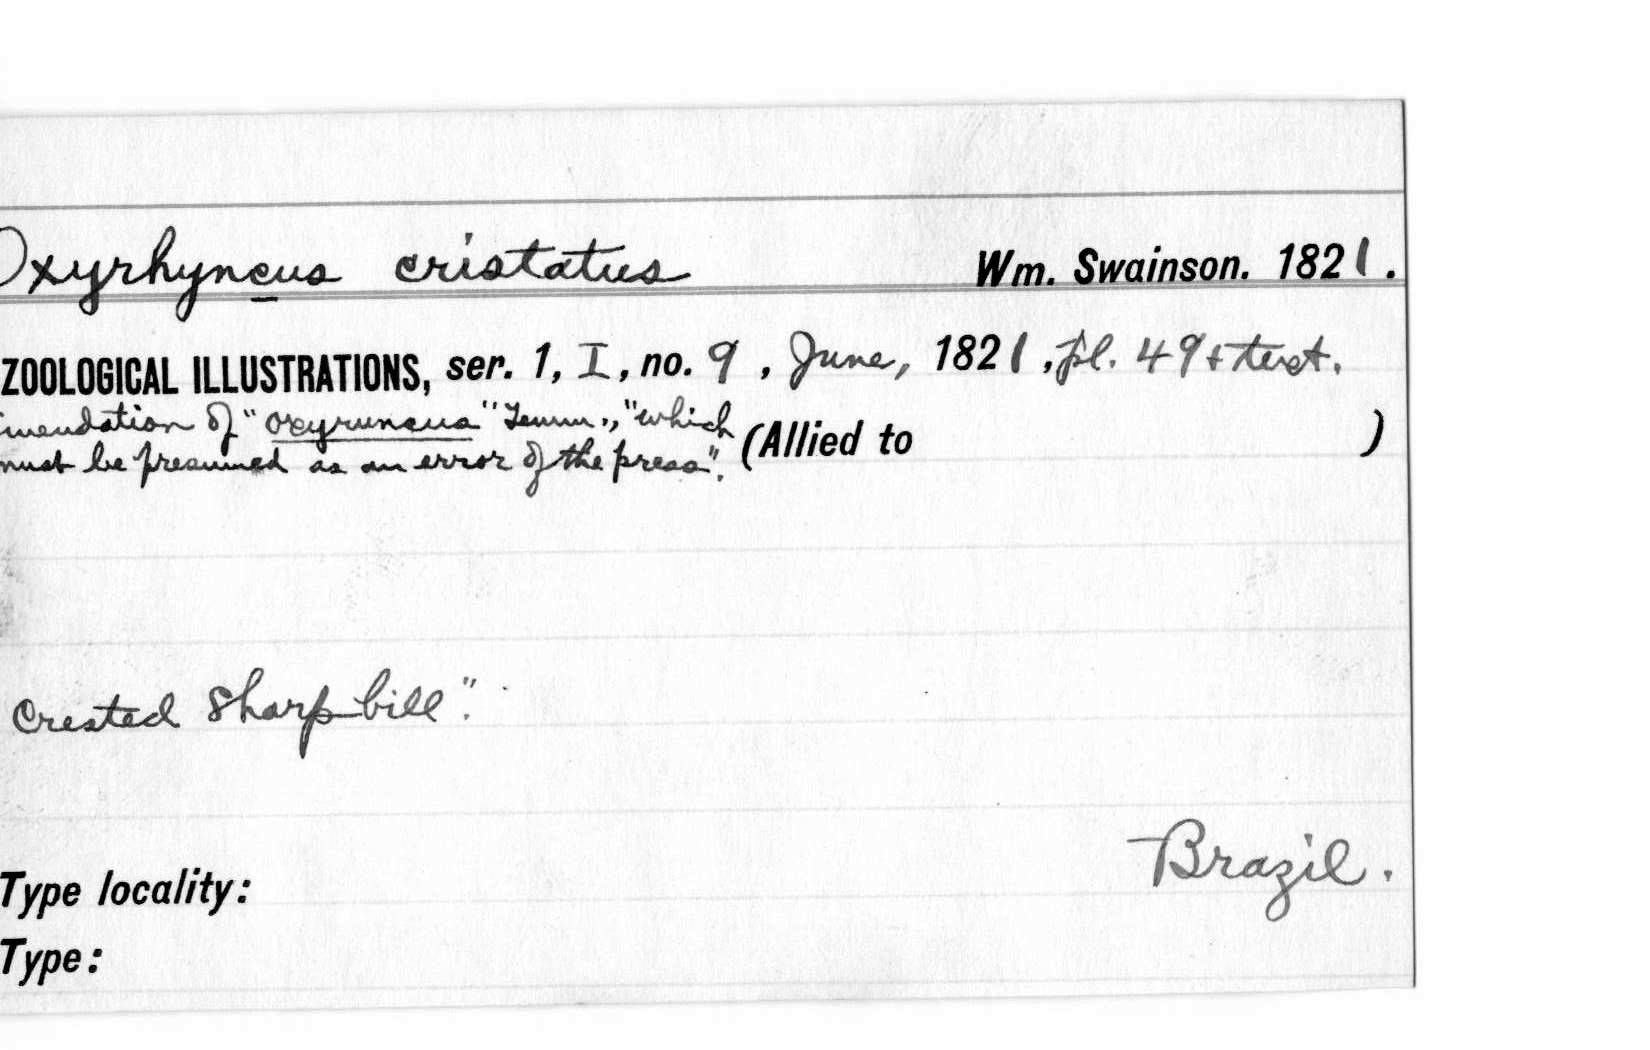 Oxyrhyncus cristatus Wm. Swainson. 1821.
ZOOLOGICAL ILLUSTRATIONS, ser. 1, I, no. 9, June, 1821, pl. 49 + text.
imendation of "oxyruncus" Temm., "which
must be presumed as an error of the press". (Allied to )
Crested Sharp-bill".
Brazil.
Type locality:
Type: